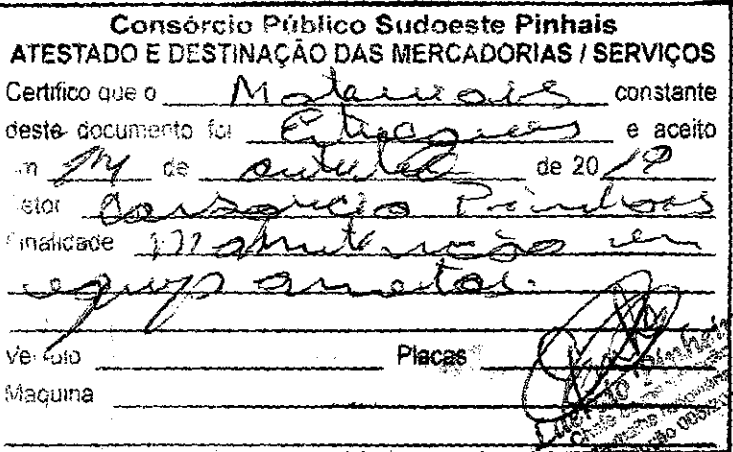 Consórcio Público Sudoeste Pinhais
ATESTADO E DESTINAÇÃO DAS MERCADORIAS / SERVIÇOS
Certifico que o Materiais constante
deste documento foi Entregues e aceito
em de outubro de 2019
Setor Consórcio Pinhais
Finalidade Manutenção em
equipamentos.
Veículo Placas
Maquina
Pinhais